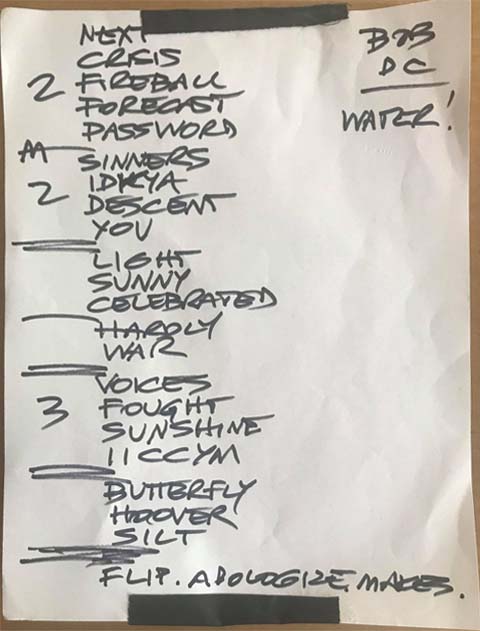 NEXT
CRISIS
2 FIREBALL
FORECAST
PASSWORD
SINNERS
2 IDKYA
DESCENT
YOU
LIGHT
SUNNY
CELEBRATED
HARDLY
WAR
VOICES
3 FOUGHT
SUNSHINE
IICCYM
BUTTERFLY
HOOVER
SILT
FLIP. APOLOGIZE. MAKES.
DC
WATER!